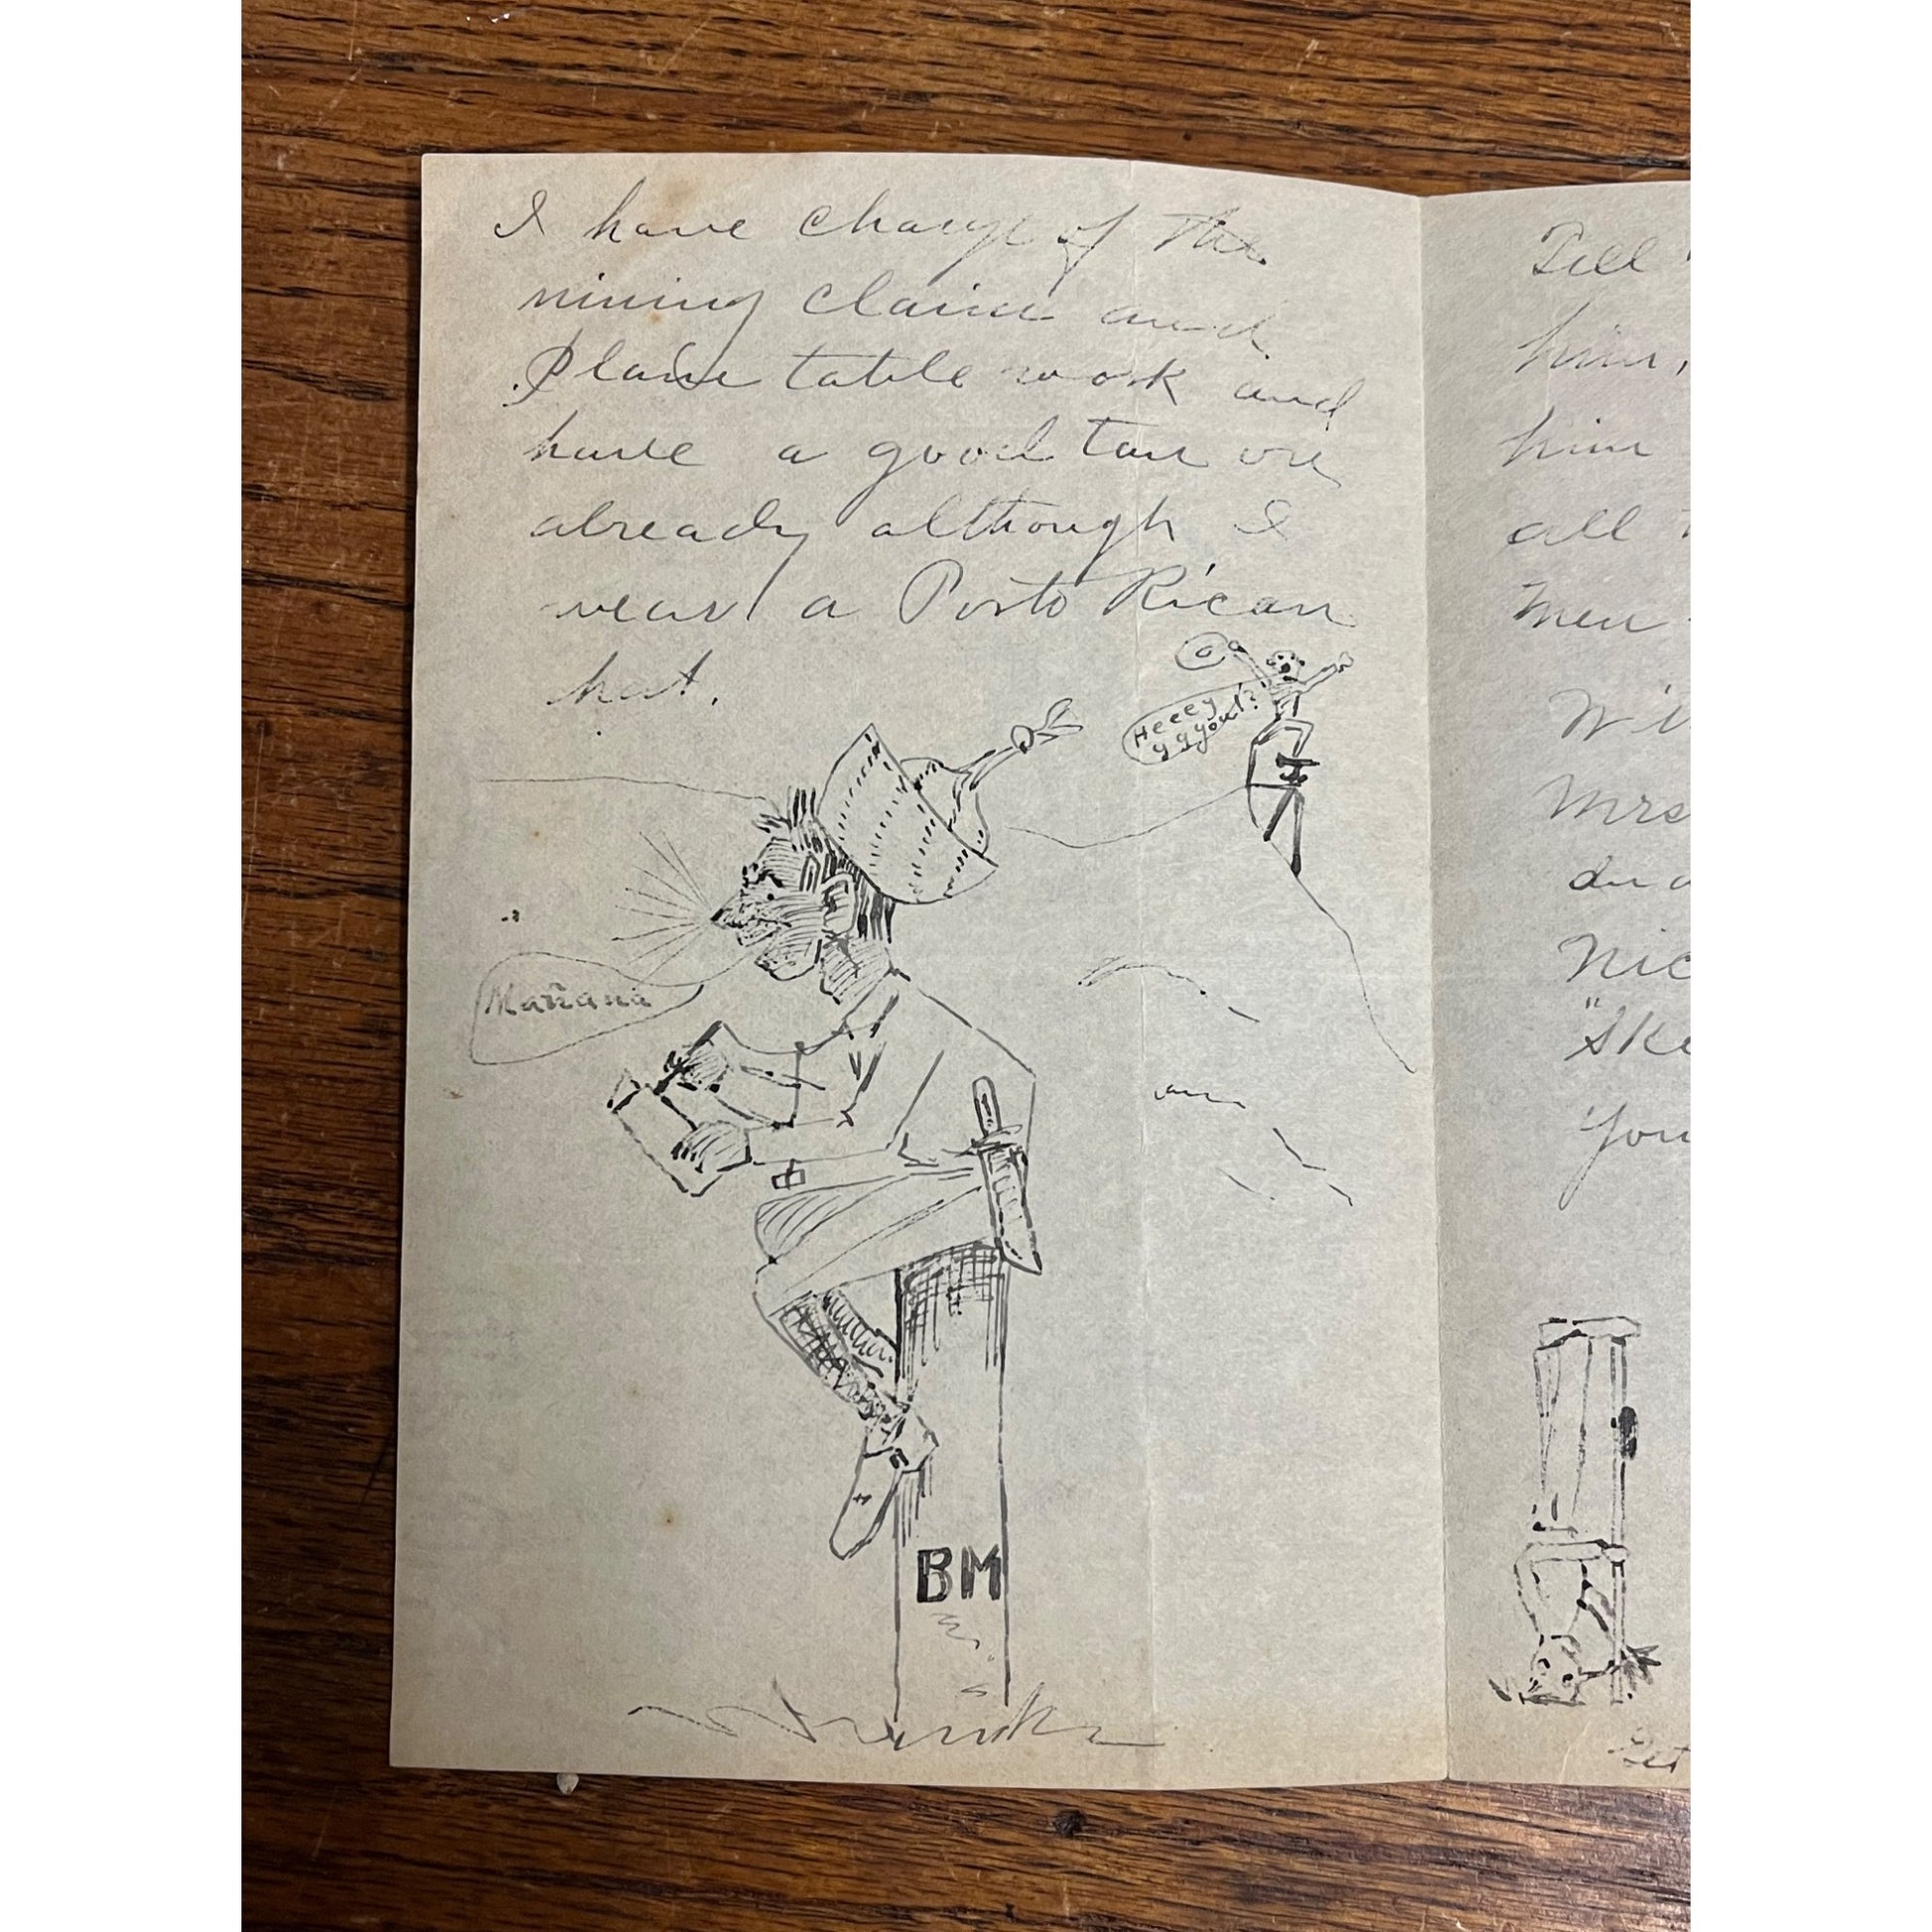 I have charge of the
mining claim and
Plane table work and
have a good tan on
already although I
wear a Porto Rican
hat.
Heeey
yyyou!?
Mañana
BM
Tell
him,
him
all
men
Wi
Mrs
Nic
"Ske
You
Get